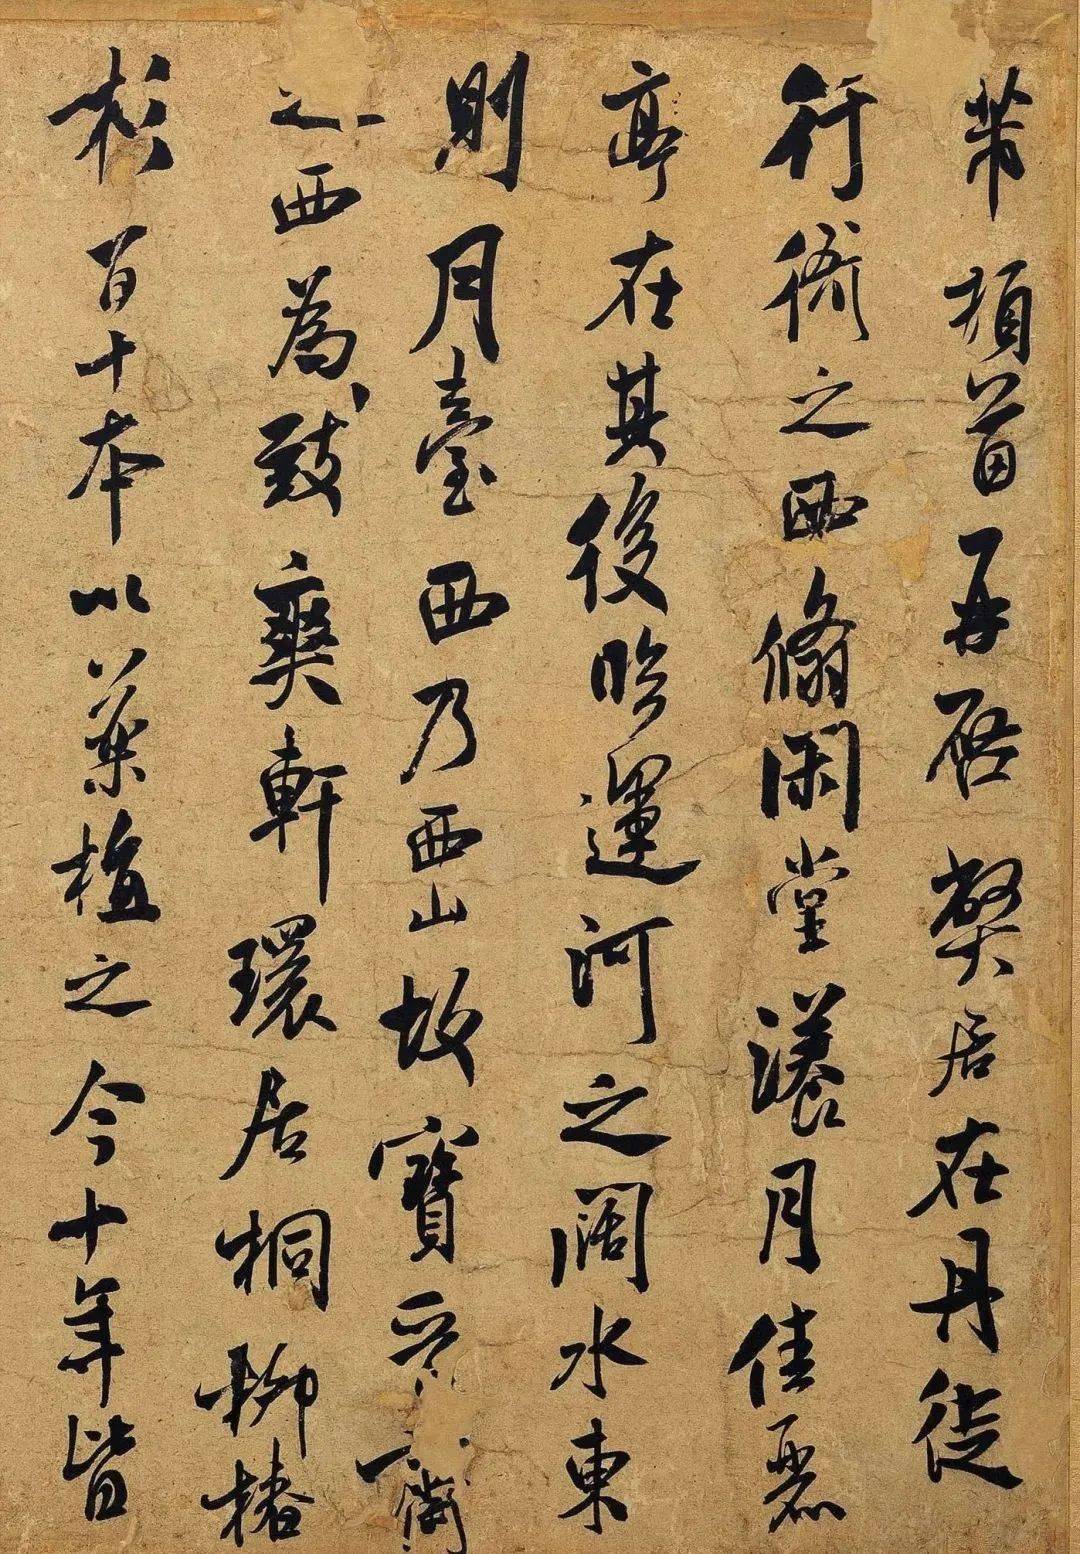 芾頓首再啓弊居在丹徒
行衙之西脩閑堂漾月佳麗
亭在其後臨運河之闊水東
則月臺西乃西山故寶晉齋
之西為致爽軒環居桐柳椿
杉百十本以藥植之今十年皆